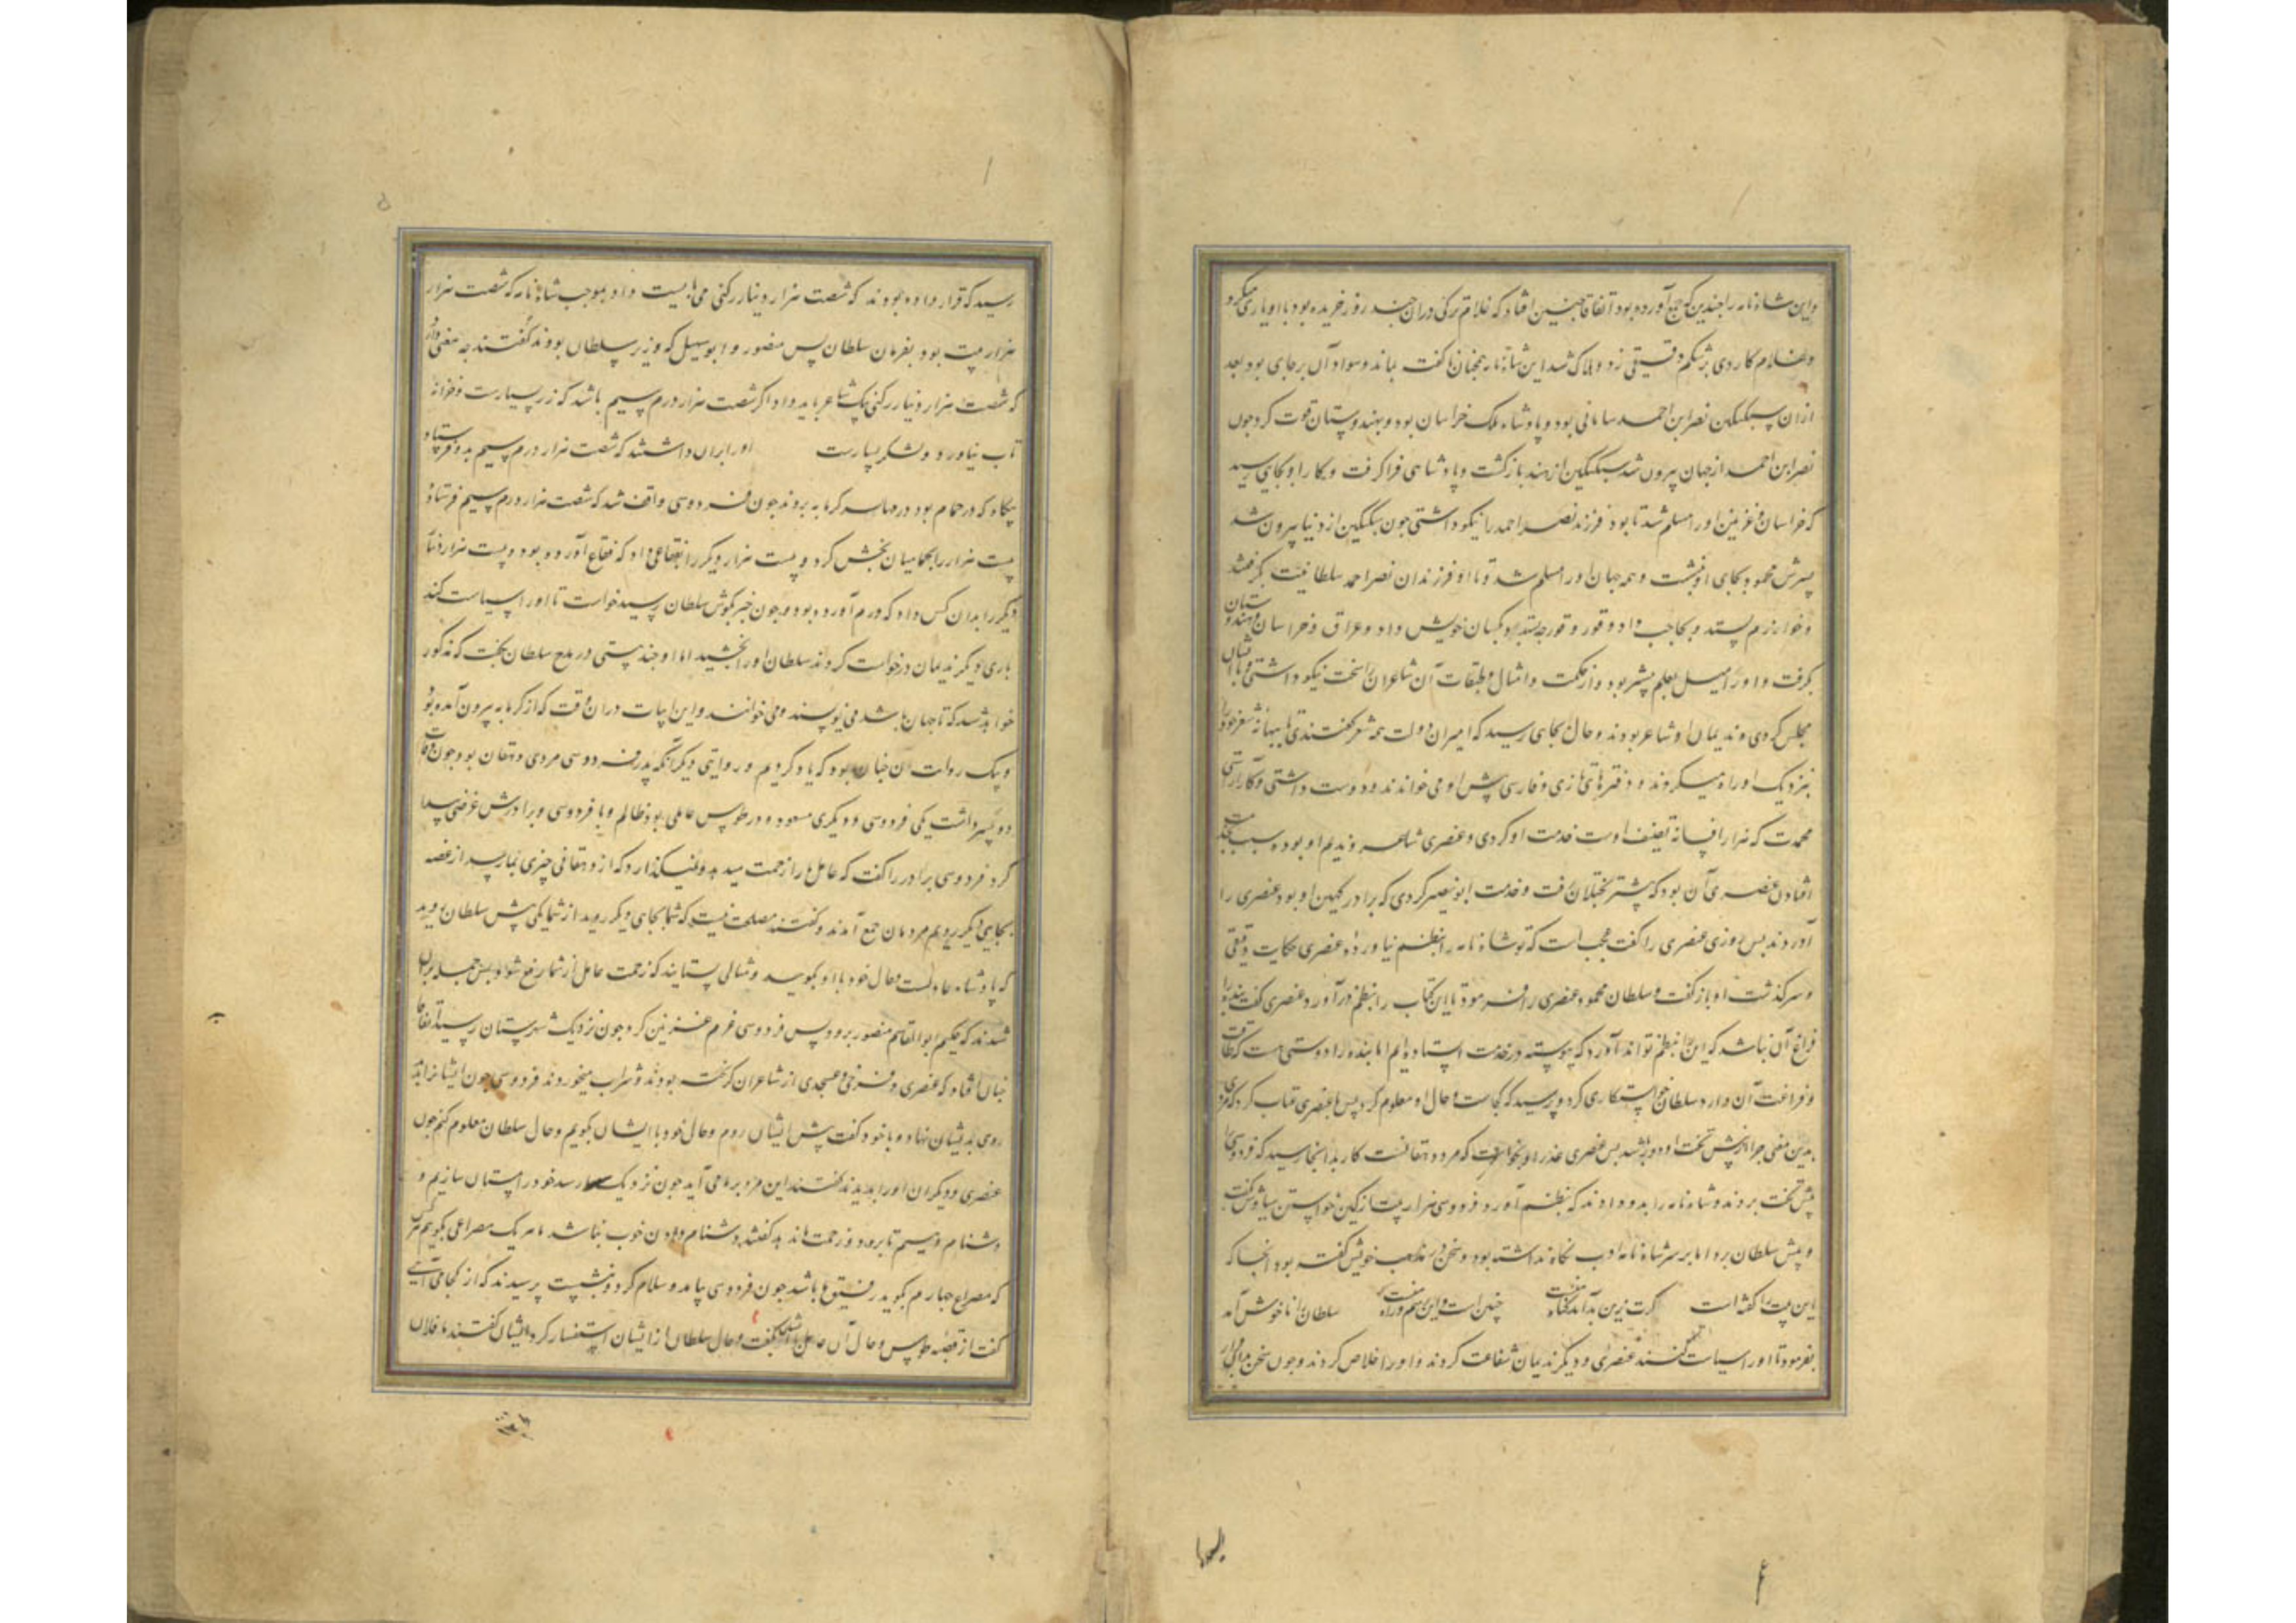 واین شاه‌نامه را چندین که جمع آورده بود اتفاقا چنین افتاد که غلام ترکی در ان چند روز خریده بود با او یاری میکرد
و غلام کاردی بر شکم دقیقی زد و هلاک شد این شاه‌نامه همچنان ناگفت بماند و سواد آن بر جای بود بعد
ازان سبکتکین نصر ابن احمد سامانی بود و پادشاه ملک خراسان بود و بهندوستان قوت کرد جون
نصر ابن احمد از جهان بیرون شد سبکتکین از هند بازکشت و پادشاهی فرا کرفت و کار او بجایی رسید
که خراسان و غزنین او را مسلم شد تا بود فرزند نصر احمد را نیکو داشتی جون سبکتکین از دنیا بیرون شد
پسرش محمود بجای او نشست و همه جهان او را مسلم شد و با او فرزندان نصر احمد سلطانیت بکرفتند
و خوارزم بستد و بحاجب داد و بکسان خویش داد و عراق و خراسان و هندوستان
بکرفت و او را میل بعلم بیشتر بود و از حکمت و امثال و طبقات آن شاعران را سخت نیکو داشتی و با ایشان
مجلس کردی و ندیمان او شاعر بودند و حال بجای رسید که امیران دولت همه شعر کفتندی تا ببهانه شعر خود را
بنزدیک او راه میکردند و دفترهای تازی و فارسی پیش او می خواندند و دوست داشتی
محمدت که هزار افسانه تصنیف اوست خدمت او کردی و عنصری شاعر و ندیم او بود و سبب
افتادن عنصری آن بود که بیشتر بختلان رفت و خدمت ابو نصر کردی که برادر کهین او بود عنصری را
آوردند پس روزی عنصری را کفت عجب است که تو شاه نامه را بنظم نیاوردی عنصری حکایت دقیقی
و سرکذشت او باز کفت و سلطان محمود عنصری را فرمود تا این کتاب را بنظم در آورد عنصری کفت بنده را
فراغ آن نباشد که این را بنظم تواند آورد که پیوسته در خدمت استاده ایم اما بنده را دوستی هست که طاقت
و فراغت آن دارد سلطان خواستکاری کرد و پرسید که کجاست و حال او معلوم کرد پس با عنصری عتاب کرد که مردی
بدین معنی چرا از پیش تخت او دور باشد پس عنصری عذر او بخواست که مرد دهقانست کار بدانجا رسید که فردوسی را
پیش تخت بردند و شاه نامه را بدو دادند که بنظم آورد فردوسی هزار بیت از کین خواستن سیاوش بکفت
و پیش سلطان برد اما بر سر شاه نامه ادب نکاه نداشته بود و سخن در مذهب خویش کفته بود انجا که
این بیت را کفته است کرت زین بد آید کناه منست چنین است و این رسم و راه منست سلطان را ناخوش آمد
بفرمود تا او را سیاست کنند عنصری و دیکر ندیمان شفاعت کردند و او را خلاص کردند و جون سخن
رسید که قرار داده بودند که شصت هزار دینار رکنی می بایست داد بموجب شاه نامه که شصت هزار
هزار بیت بود بفرمان سلطان پس منصور و ابو سهیل که وزیر سلطان بودند کفتند چه معنی دارد
که شصت هزار دینار رکنی بیک شاعر باید داد اکر شصت هزار درم سیم باشد که زر بسیارست و خزانه
تاب نیاورد و لشکر بسیارست او را بران داشتند که شصت هزار درم سیم بدو فرستاد
بیکاه که در حمام بود کرمابه بردند جون فردوسی واقف شد که شصت هزار درم سیم فرستاد
بیست هزار را بحمامیان بخش کرد و بیست هزار دیکر را بفقاعی داد که فقاع آورده بود و بیست هزار
دیکر را بدان کس داد که درم آورده بود و جون خبر بکوش سلطان رسید خواست تا او را سیاست کند
باری دیکر ندیمان درخواست کردند سلطان او را بخشید اما او چند بیتی در مدح سلطان بکفت که مذکور
خواهد شد که تا جهان باشد می نویسند و می خوانند و این ابیات در ان وقت که از کرمابه بیرون آمده بود
و بیک روایت ان چنان بود که یاد کردیم و روایتی دیکر آنکه پدر فردوسی مردی دهقان بود جون وفات
دو پسر داشت یکی فردوسی و دیکری مسعود و در طوس عاملی بود ظالم و با فردوسی و برادرش غرضی پیدا
کرد فردوسی برادر را کفت که عامل ما را زحمت میدهد و نمیکذارد که از دهقانی چیزی بما رسد از غصه
بجایی دیکر رویم مردمان جمع آمدند و کفتند مصلحت نیست که شما بجای دیکر روید از شما یکی پیش سلطان بروید
که پادشاه عادلست و حال خود با او بکوید و مثالی بستاند که زحمت عامل از شما رفع شود پس جمله بران
شدند که حکیم ابو القاسم منصور برود پس فردوسی عزم غزنین کرد جون نزدیک شهرستان رسید اتفاقا
چنان افتاد که عنصری و فرخی و عسجدی از شاعران کریخته بودند و شراب میخوردند فردوسی جون ایشانرا بدید
روی بدیشان نهاد و با خود کفت پیش ایشان روم و حال خود با ایشان بکویم و حال سلطان معلوم کنم جون
عنصری و دیکران او را بدیدند کفتند این مرد بر ما می آید جون نزدیک ما رسد خود را مستان سازیم و
دشنام دهیم تا برود و زحمت ماند بد کفتند دشنام دادن خوب نباشد ما هر یک مصراعی بکویم هر کس
که مصراع چهارم بکوید رفیق ما باشد جون فردوسی بیامد و سلام کرد و بنشست پرسیدند که از کجا می آیی
کفت از قصبه طوس و حال آن عامل با ایشان بکفت و حال سلطان از ایشان استفسار کرد ایشان کفتند ما فلان